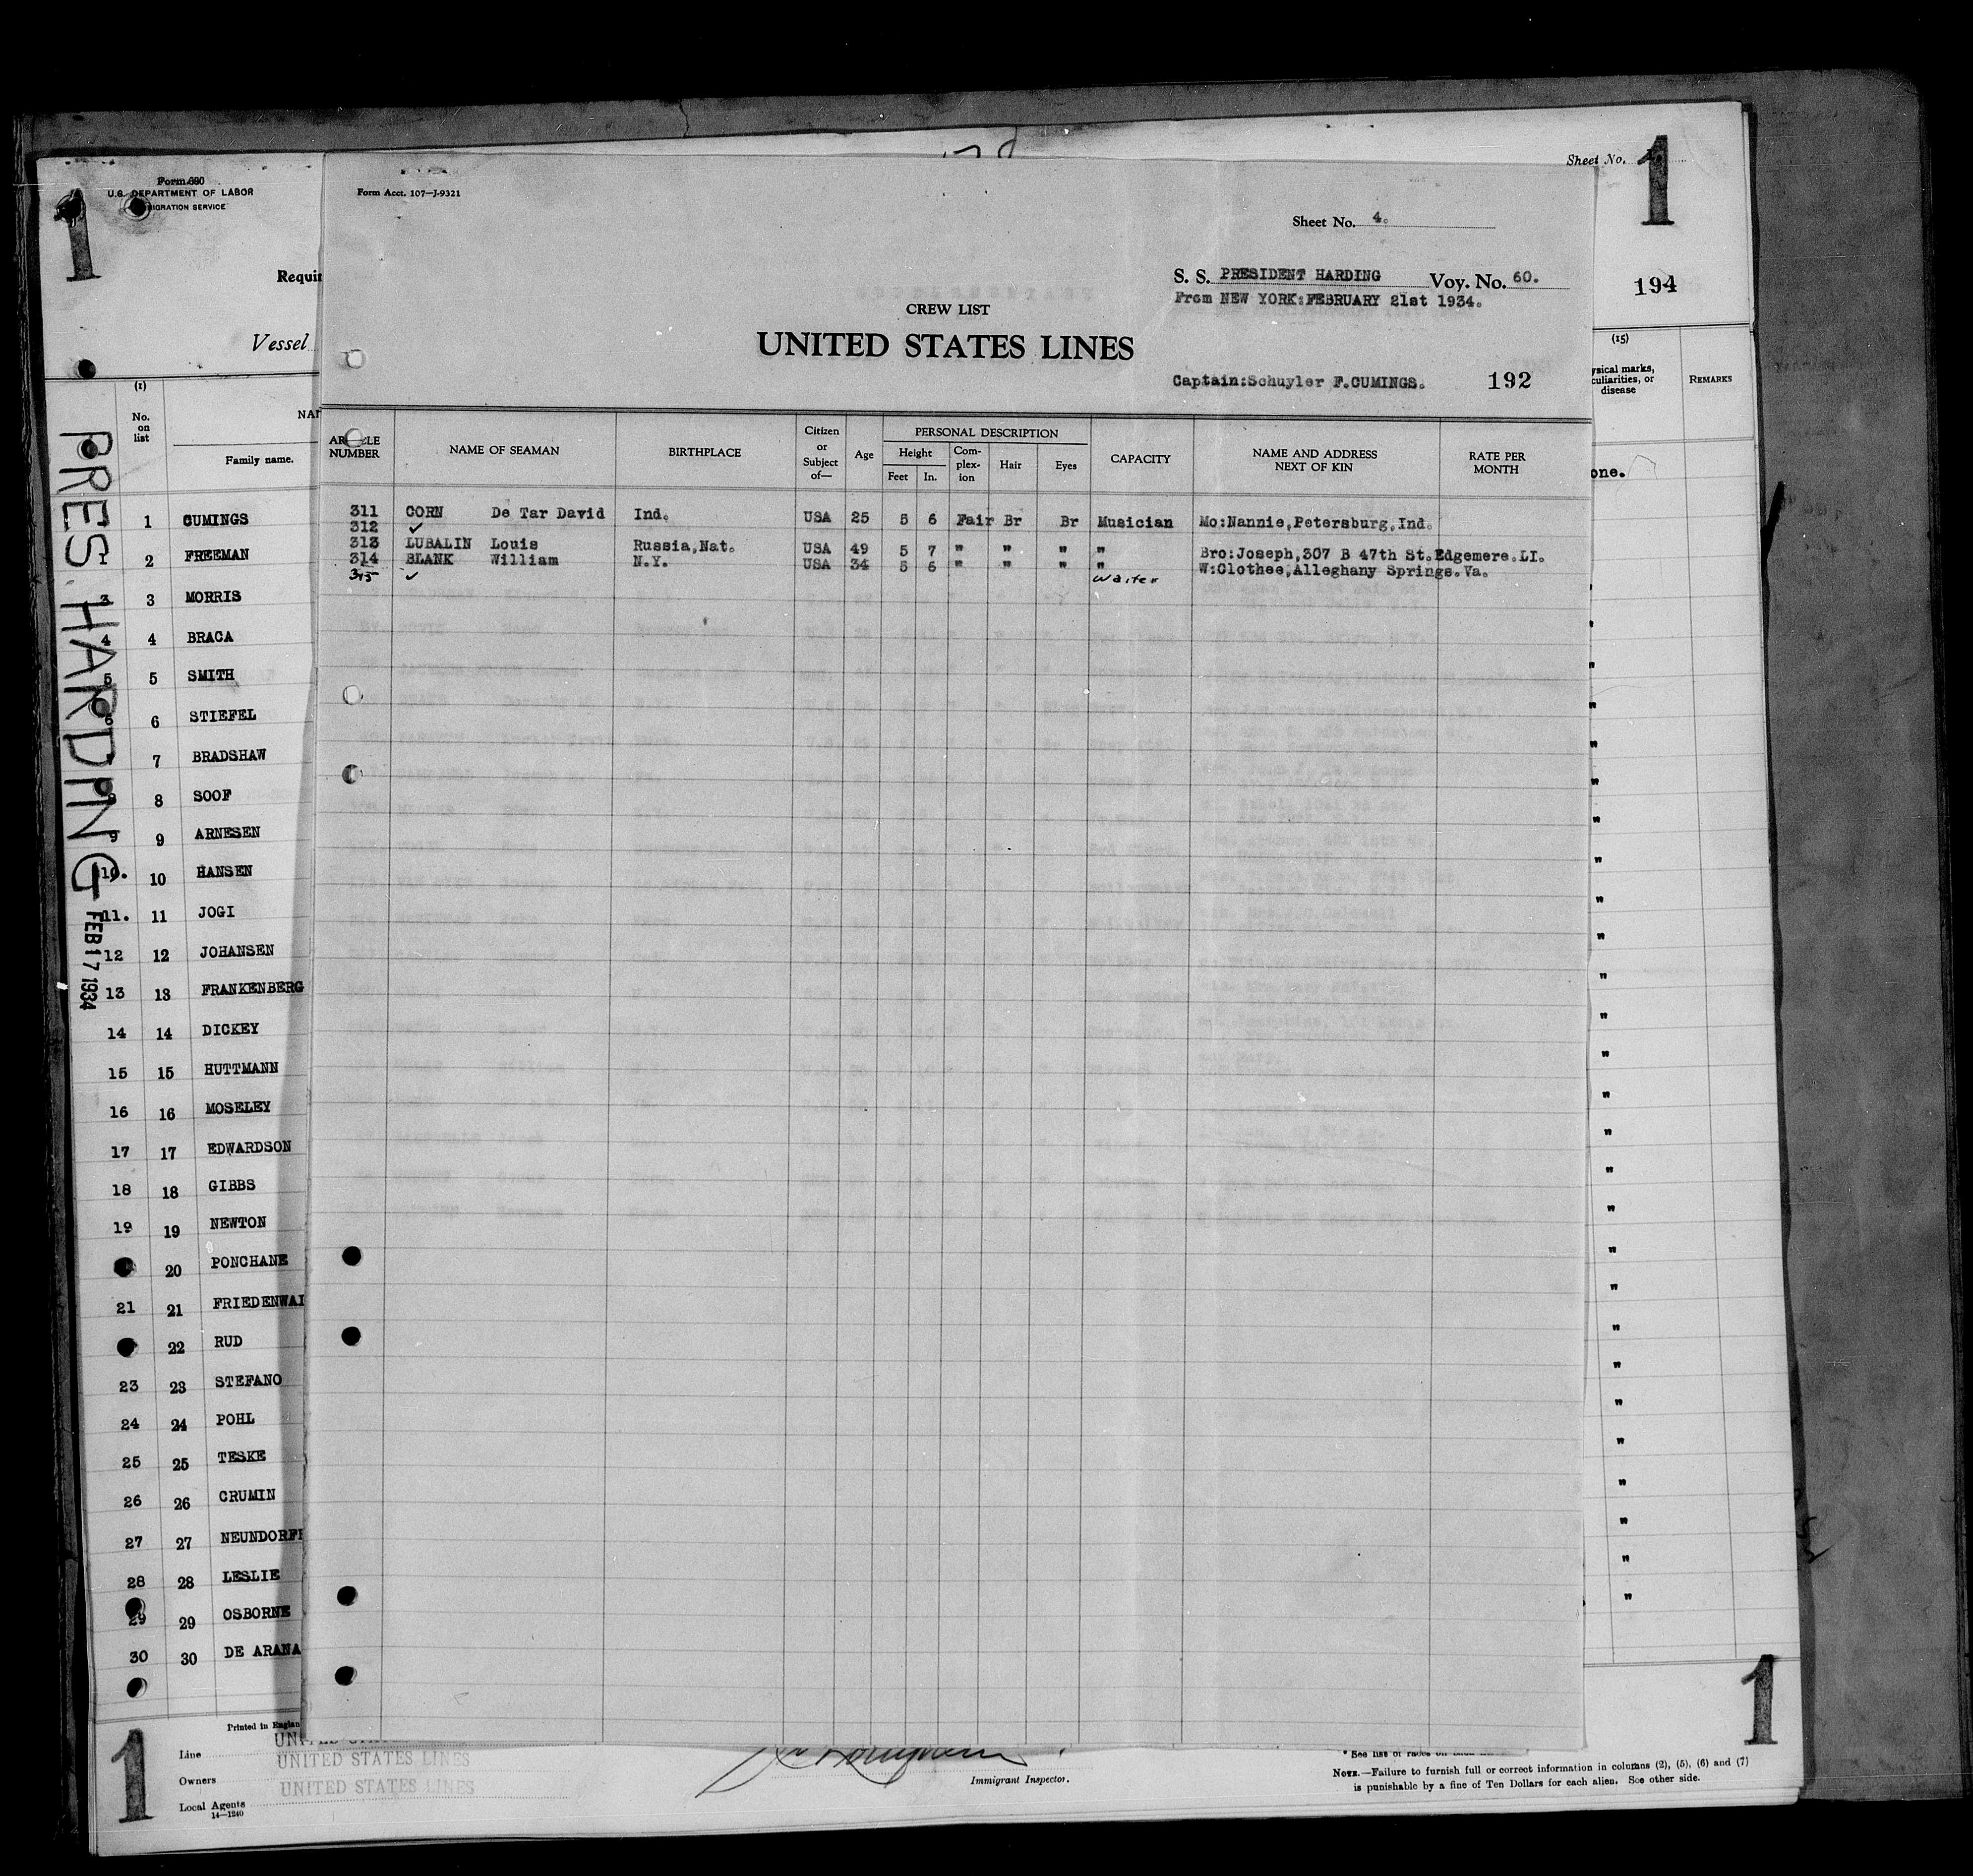 Form 680
U.S. DEPARTMENT OF LABOR
IMMIGRATION SERVICE
1
Requir
Vessel
(1)
No.
on
list
NAM
Family name.
PRES. HARDING
FEB 17 1934
1 1 CUMINGS
2 FREEMAN
3 3 MORRIS
4 4 BRACA
5 5 SMITH
6 6 STIEFEL
7 BRADSHAW
8 8 SOOF
9 9 ARNESEN
10. 10 HANSEN
11. 11 JOGI
12 12 JOHANSEN
13 13 FRANKENBERG
14 14 DICKEY
15 15 HUTTMANN
16 16 MOSELEY
17 17 EDWARDSON
18 18 GIBBS
19 19 NEWTON
20 PONCHANE
21 21 FRIEDENWAL
22 RUD
23 23 STEFANO
24 24 POHL
25 25 TESKE
26 26 CRUMIN
27 27 NEUNDORFE
28 28 LESLIE
29 29 OSBORNE
30 30 DE ARANA
Printed in England
1
Line UNITED STATES LINES
Owners UNITED STATES LINES
Local Agents UNITED STATES LINES
14—1240
Form Acct. 107—J-9321
Sheet No. 4.
S. S. PRESIDENT HARDING Voy. No. 60.
From NEW YORK:FEBRUARY 21st 1934.
CREW LIST
UNITED STATES LINES
Captain:Schuyler F.CUMINGS. 192
ARTICLE NUMBER NAME OF SEAMAN BIRTHPLACE Citizen or Subject of— Age PERSONAL DESCRIPTION Height Feet In. Complexion Hair Eyes CAPACITY NAME AND ADDRESS NEXT OF KIN RATE PER MONTH
311 CORN De Tar David Ind. USA 25 5 6 Fair Br Br Musician Mo:Nannie,Petersburg,Ind.
312 ✓
313 LUBALIN Louis Russia,Nat. USA 49 5 7 " " " " Bro:Joseph,307 B 47th St.Edgemere.LI.
314 BLANK William N.Y. USA 34 5 6 " " " " W:Clothee,Alleghany Springs.Va.
315 ✓ Waiter
Sheet No. 1
1
194
(15)
ysical marks,
culiarities, or
disease
REMARKS
one.
1
Immigrant Inspector.
* See list of races on
NOTE.—Failure to furnish full or correct information in columns (2), (5), (6) and (7)
is punishable by a fine of Ten Dollars for each alien. See other side.